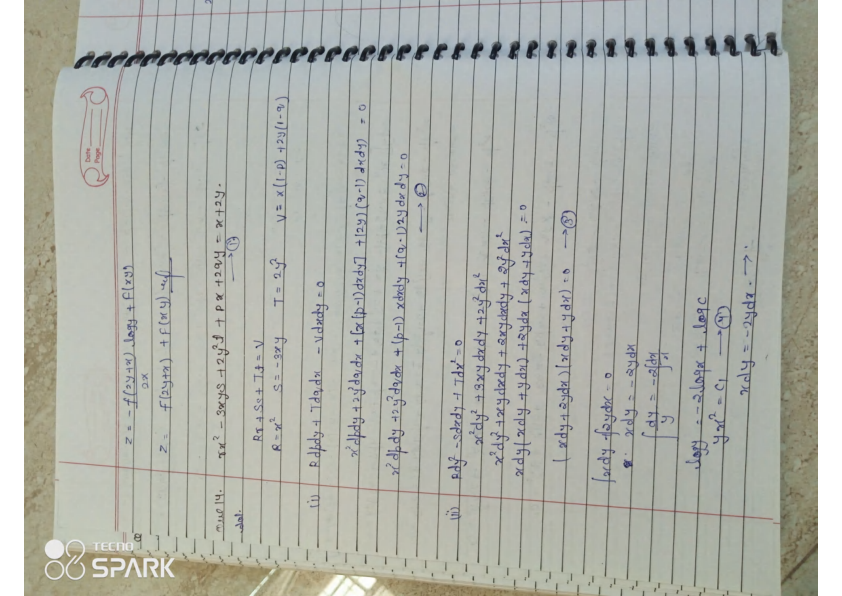 Date
Page
z = -f(2y+x) logy + F(xy)
2x
z = f(2y+x) + F(xy)
14. rx² - 3xys + 2y²t + px + 2qy = x + 2y.
→ (1)
Rr + Ss + Tt = V
R = x² S = -3xy T = 2y² V = x(1-p) + 2y(1-q)
(i) Rdpdy + Tdqdx - Vdxdy = 0
x²dpdy + 2y²dqdx + [x(p-1)dxdy] + (2y)(q-1)dxdy) = 0
x²dpdy + 2y²dqdx + (p-1)xdxdy + (q-1)2ydxdy = 0
→ (2)
(ii) Rdy² - Sdxdy + Tdx² = 0
x²dy² + 3xydxdy + 2y²dx²
x²dy² + xydxdy + 2xydxdy + 2y²dx²
xdy(xdy + ydx) + 2ydx(xdy + ydx) = 0
(xdy + 2ydx)(xdy + ydx) = 0 → (3)
xdy + 2ydx = 0
xdy = -2ydx
∫dy/y = -2∫dx/x
logy = -2logx + logc
yx² = c₁ → (4)
xdy = -2ydx. →.
TECNO
SPARK